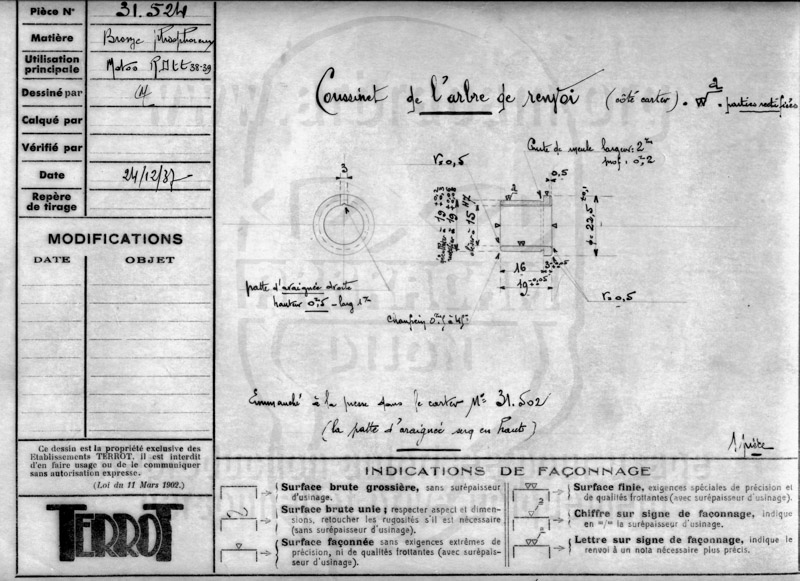 Pièce N° 31.524
Matière Bronze phosphoreux
Utilisation
principale Motos 38-39
Dessiné par
Calqué par
Vérifié par
Date 24/12/37
Repère
de tirage
MODIFICATIONS
DATE OBJET
Coussinet de l'arbre de renvoi (côté carter)
parties rectifiées
2
Cuite de meule largeur: 2
prof: 0,2
r=0,5
3
0,5
2
15 H7
16
19
r=0,5
patte d'araignée droite
hauteur 0,5 - larg 1
Chanfrein
Emmanché à la presse dans le carter N° 31.502
(la patte d'araignée sera en haut)
1 pièce
Ce dessin est la propriété exclusive des
Etablissements TERROT, il est interdit
d'en faire usage ou de le communiquer
sans autorisation expresse.
(Loi du 11 Mars 1902.)
TERROT
INDICATIONS DE FAÇONNAGE
Surface brute grossière, sans surépaisseur
d'usinage.
Surface brute unie ; respecter aspect et dimen-
sions, retoucher les rugosités s'il est nécessaire
(sans surépaisseur d'usinage).
Surface façonnée sans exigences extrêmes de
précision, ni de qualités frottantes (avec surépais-
seur d'usinage).
Surface finie, exigences spéciales de précision et
de qualités frottantes (avec surépaisseur d'usinage).
Chiffre sur signe de façonnage, indique
en "/" la surépaisseur d'usinage.
Lettre sur signe de façonnage, indique le
renvoi à un nota nécessaire plus précis.